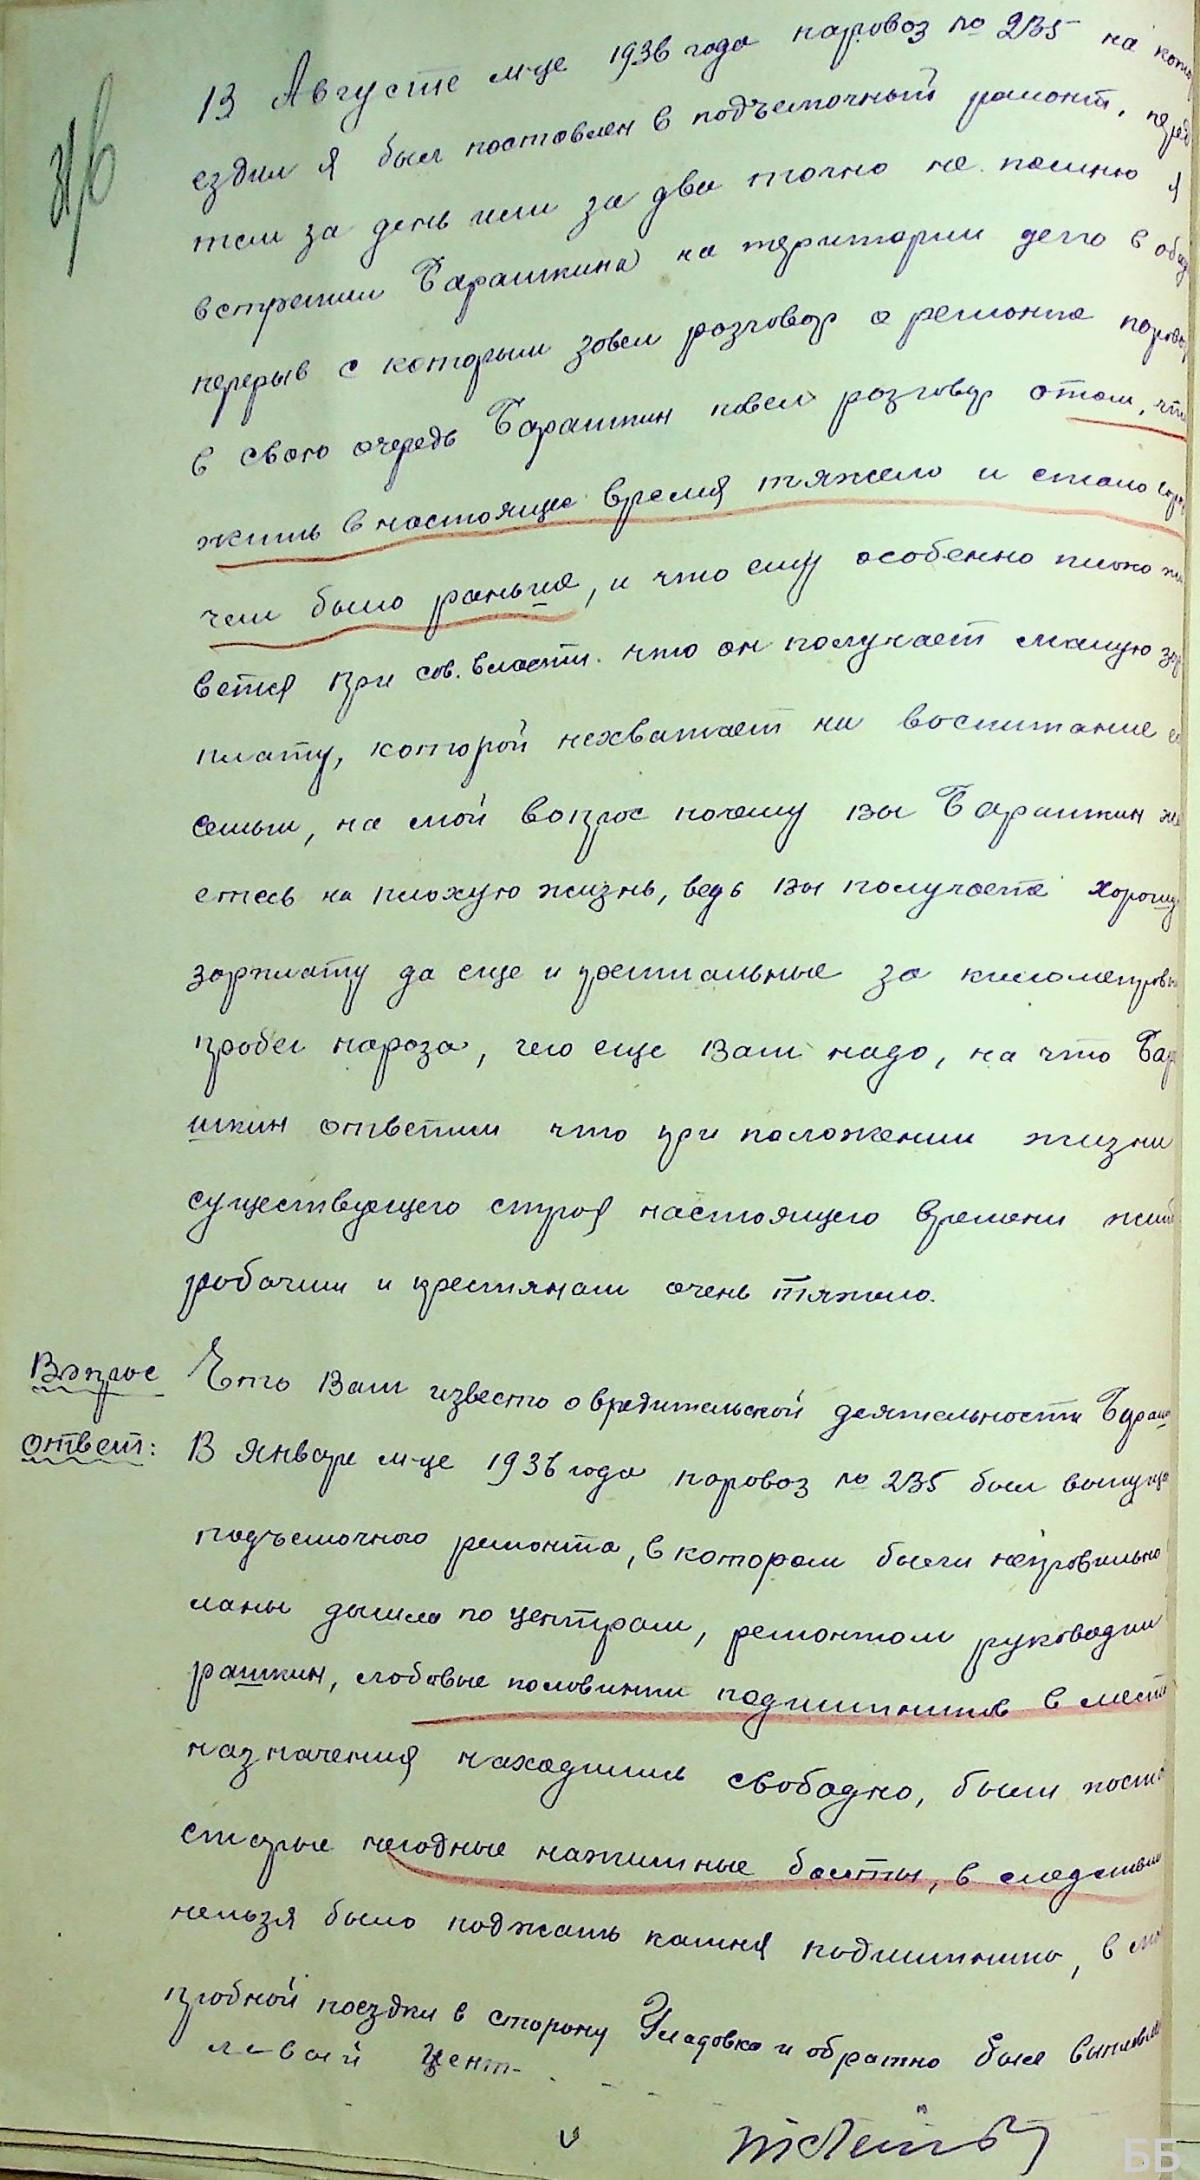 В Августе м-це 1936 года паровоз № 2135 на кото
ездил я был поставлен в подъемочный ремонт, перед
тем за день или за два точно не помню я
встретил Барашкина на територии депо в обед
перерыв с которым завел разговор о ремонте паровоз
в свою очередь Барашкин повел разговор отом, что
жить в настоящее время тяжело и стало
чем было раньше, и что ему особенно плохо жи
ветя при сов. власти. что он получает малую зар
плату, которой нехватает на воспитание
семьи, на мой вопрос почему вы Барашкин жа
етесь на плохую жизнь, ведь вы получаете хорошу
зарплату да еще и премиальные за километровы
пробег пароза, чего еще Вам надо, на что Бар
шкин ответил что при положении жизни
существуещего строя настоящего времени жить
рабочим и крестянам очень тяжело.
Вопрос Что Вам известо о вредительской деятельности Бараш
ответ: В январе м-це 1936 года паровоз № 2135 был выпуще
подъемочного ремонта, в котором были неправильно
ланы дышла по центрам, ремонтом руководил
рашкин, лобовые половинки подшипников в место
назначения находились свободно, были поста
старые негодные нажимные болты, в следствии
нельзя было поджать камня подшипника, в
пробной поездки в сторону Уладовка и обратно был выплавле
левый цент-
ББ